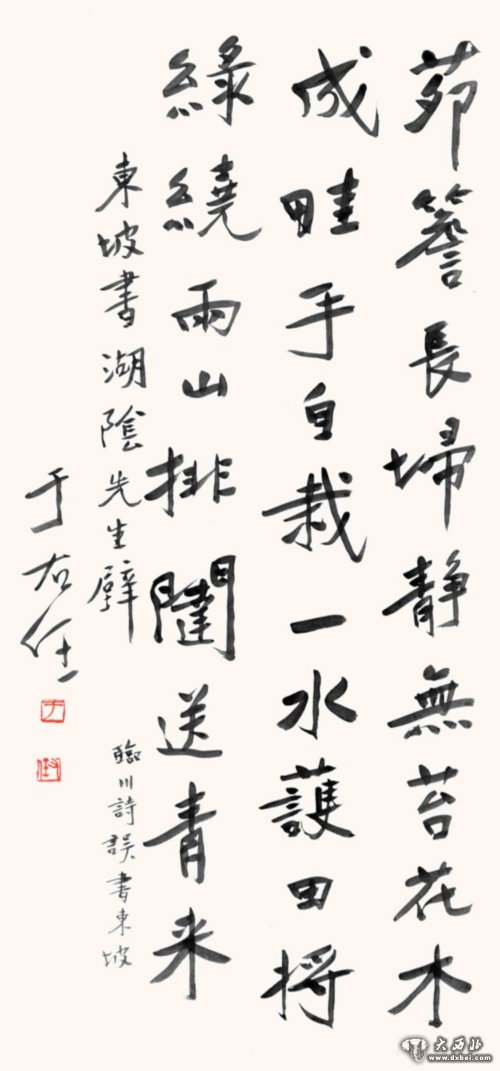 茆簷長埽靜無苔花木
成畦手自栽一水護田將
綠繞兩山排闥送青来
東坡書湖陰先生壁
臨川詩誤書東坡
于右任
大西北
www.dxbei.com